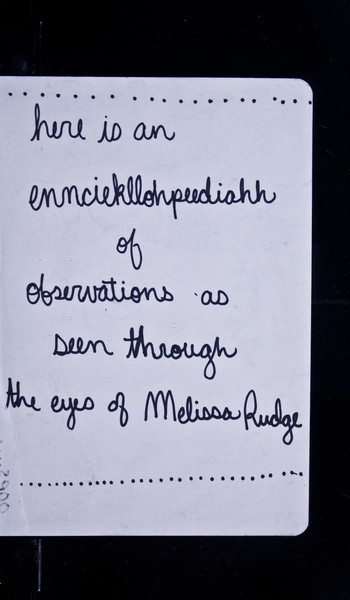 here is an
ennciekllohpeediahh
of
observations as
seen through
the eyes of Melissa Rudge